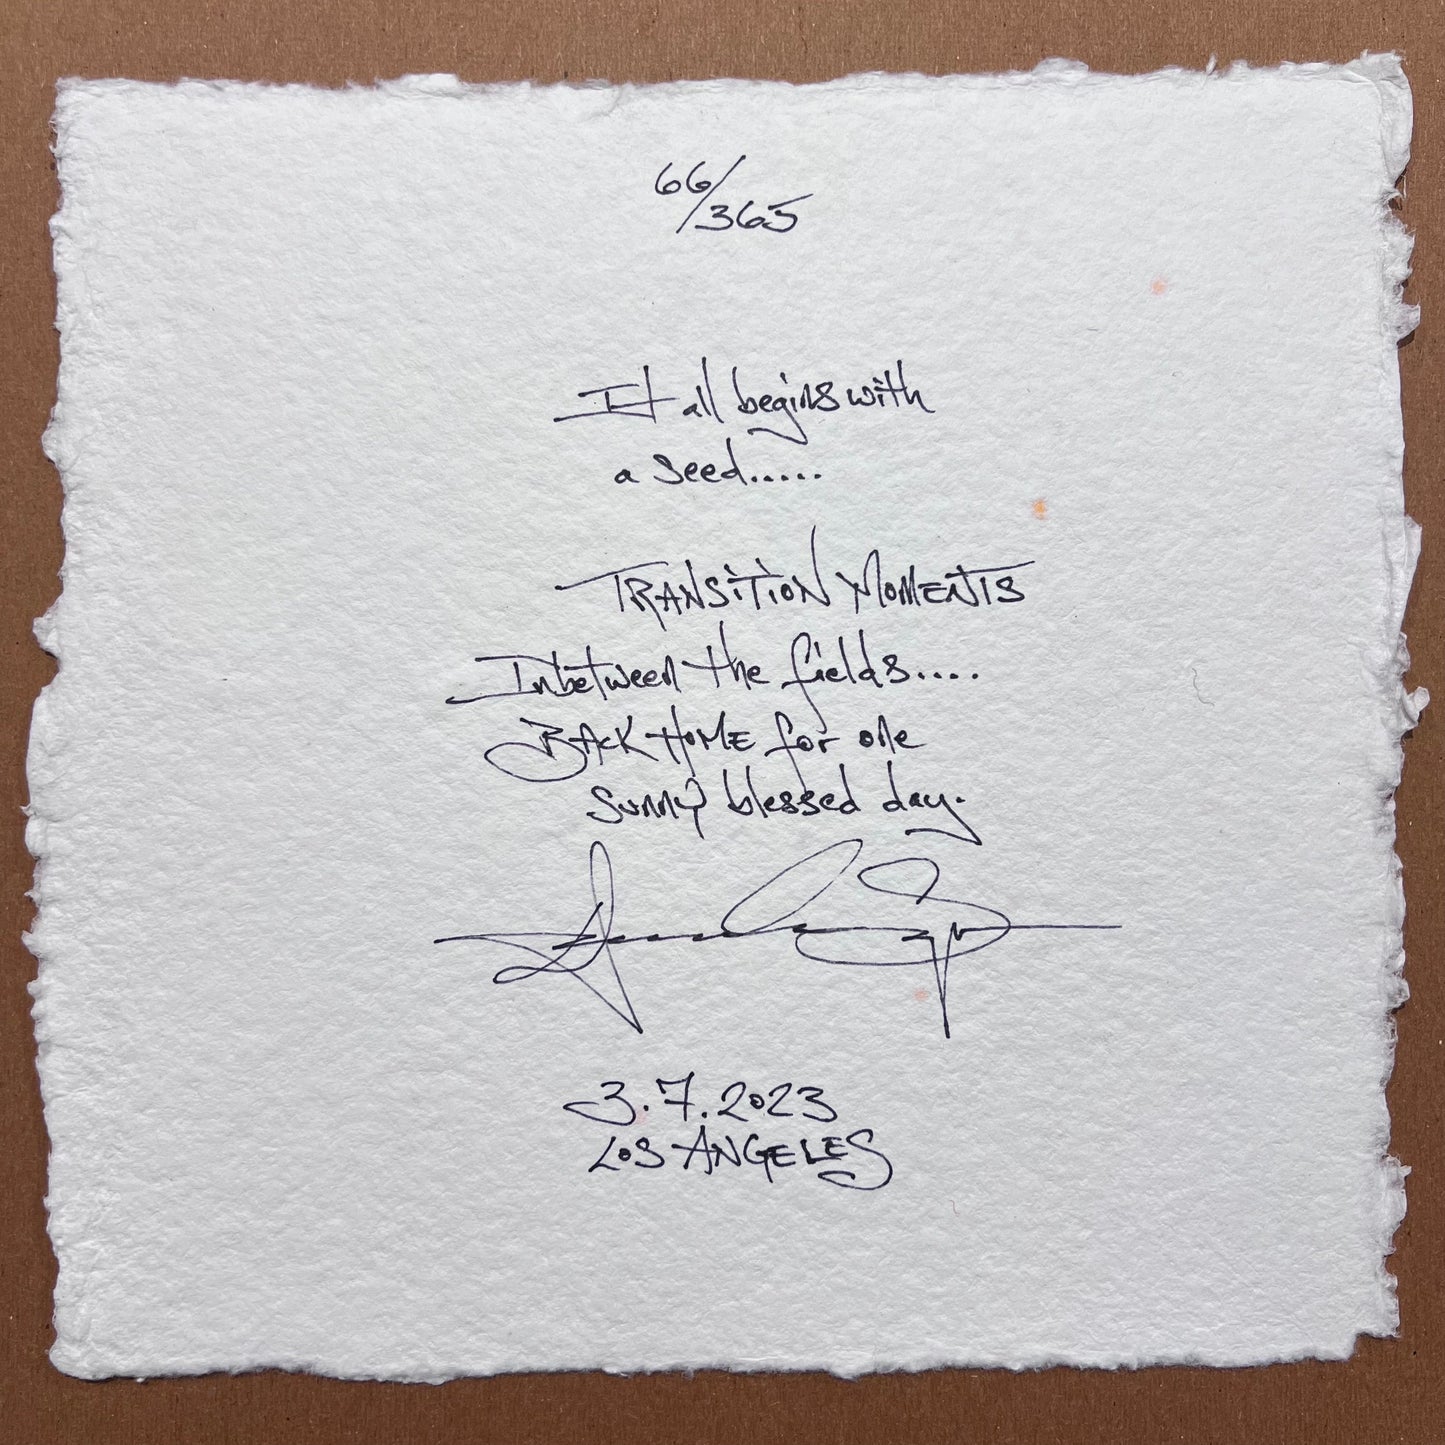 66/365
It all begins with
a seed.....
TRANSITION MOMENTS
Inbetween the fields....
BACK HOME for one
sunny blessed day.
3.7.2023
LOS ANGELES